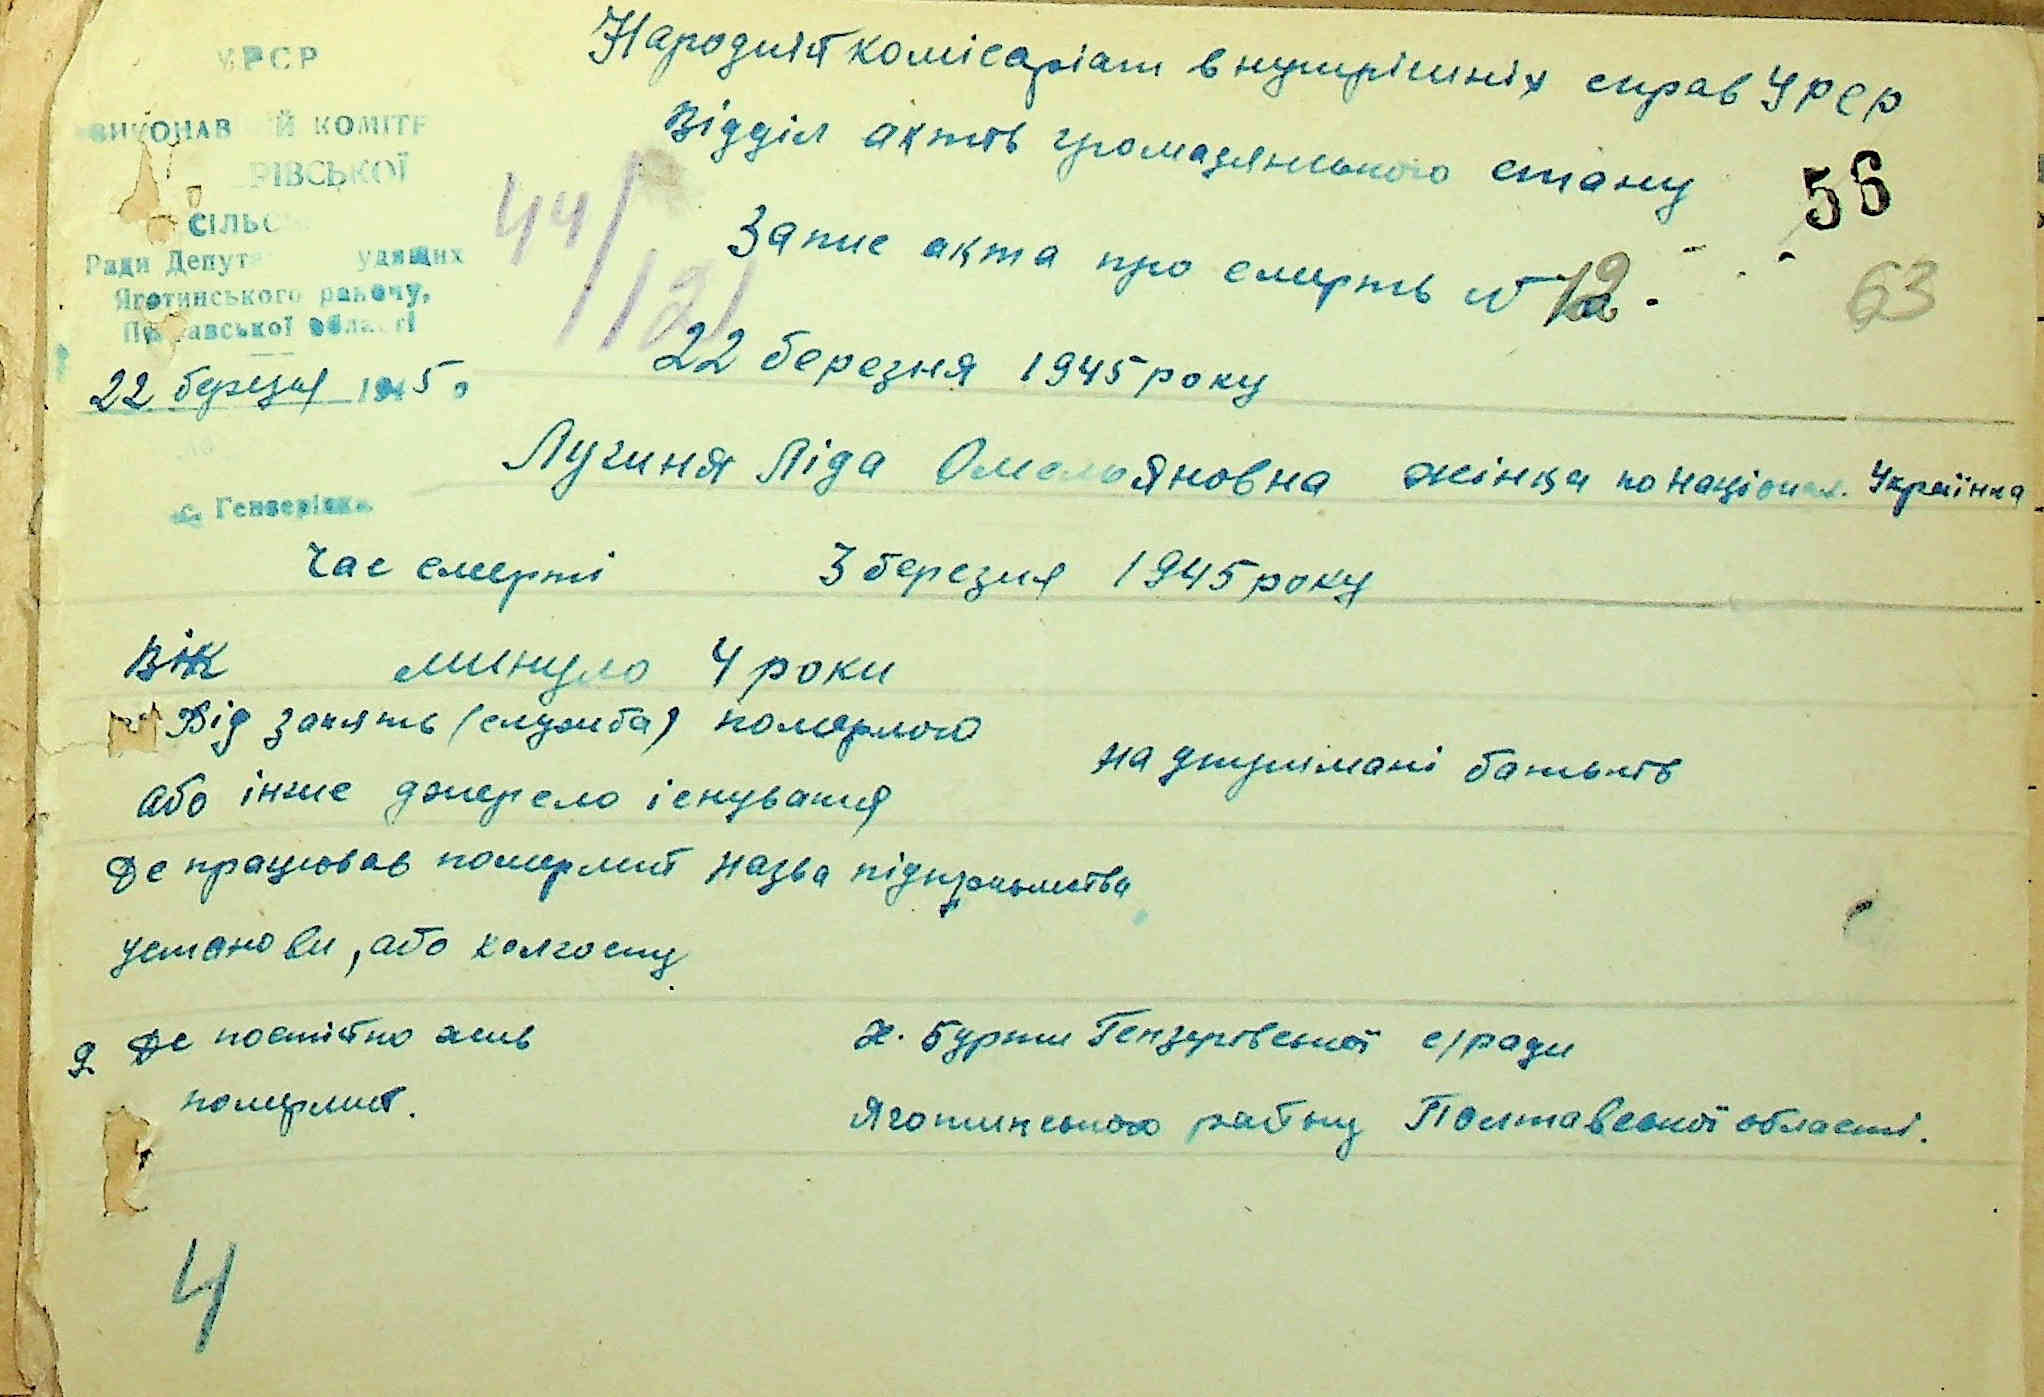 УРСР
ВИКОНАВ Й КОМІТЕ
РІВСЬКОЇ
СІЛЬС
Ради Депут удящих
Яготинського району,
Полтавської області
22 березня 1945 р
с. Гензерівка
Народний комісаріат внутрішніх справ УРСР
Відділ актів громадянського стану
56
44/12/
Запис акта про смерть № 12.
63
22 березня 1945 року
Лучиня Ліда Омельяновна жінка по націонал. Українка
Час смерті 3 березня 1945 року
Вік минуло 4 роки
Від занять (служба) померлого
або інше джерело існування на утримані батьків
Де працював померлий назва підприємства
установи, або колгоспу
9. Де постійно жив х. Бурти Гензерівської с/ради
померлий. Яготинського району Полтавської області.
4